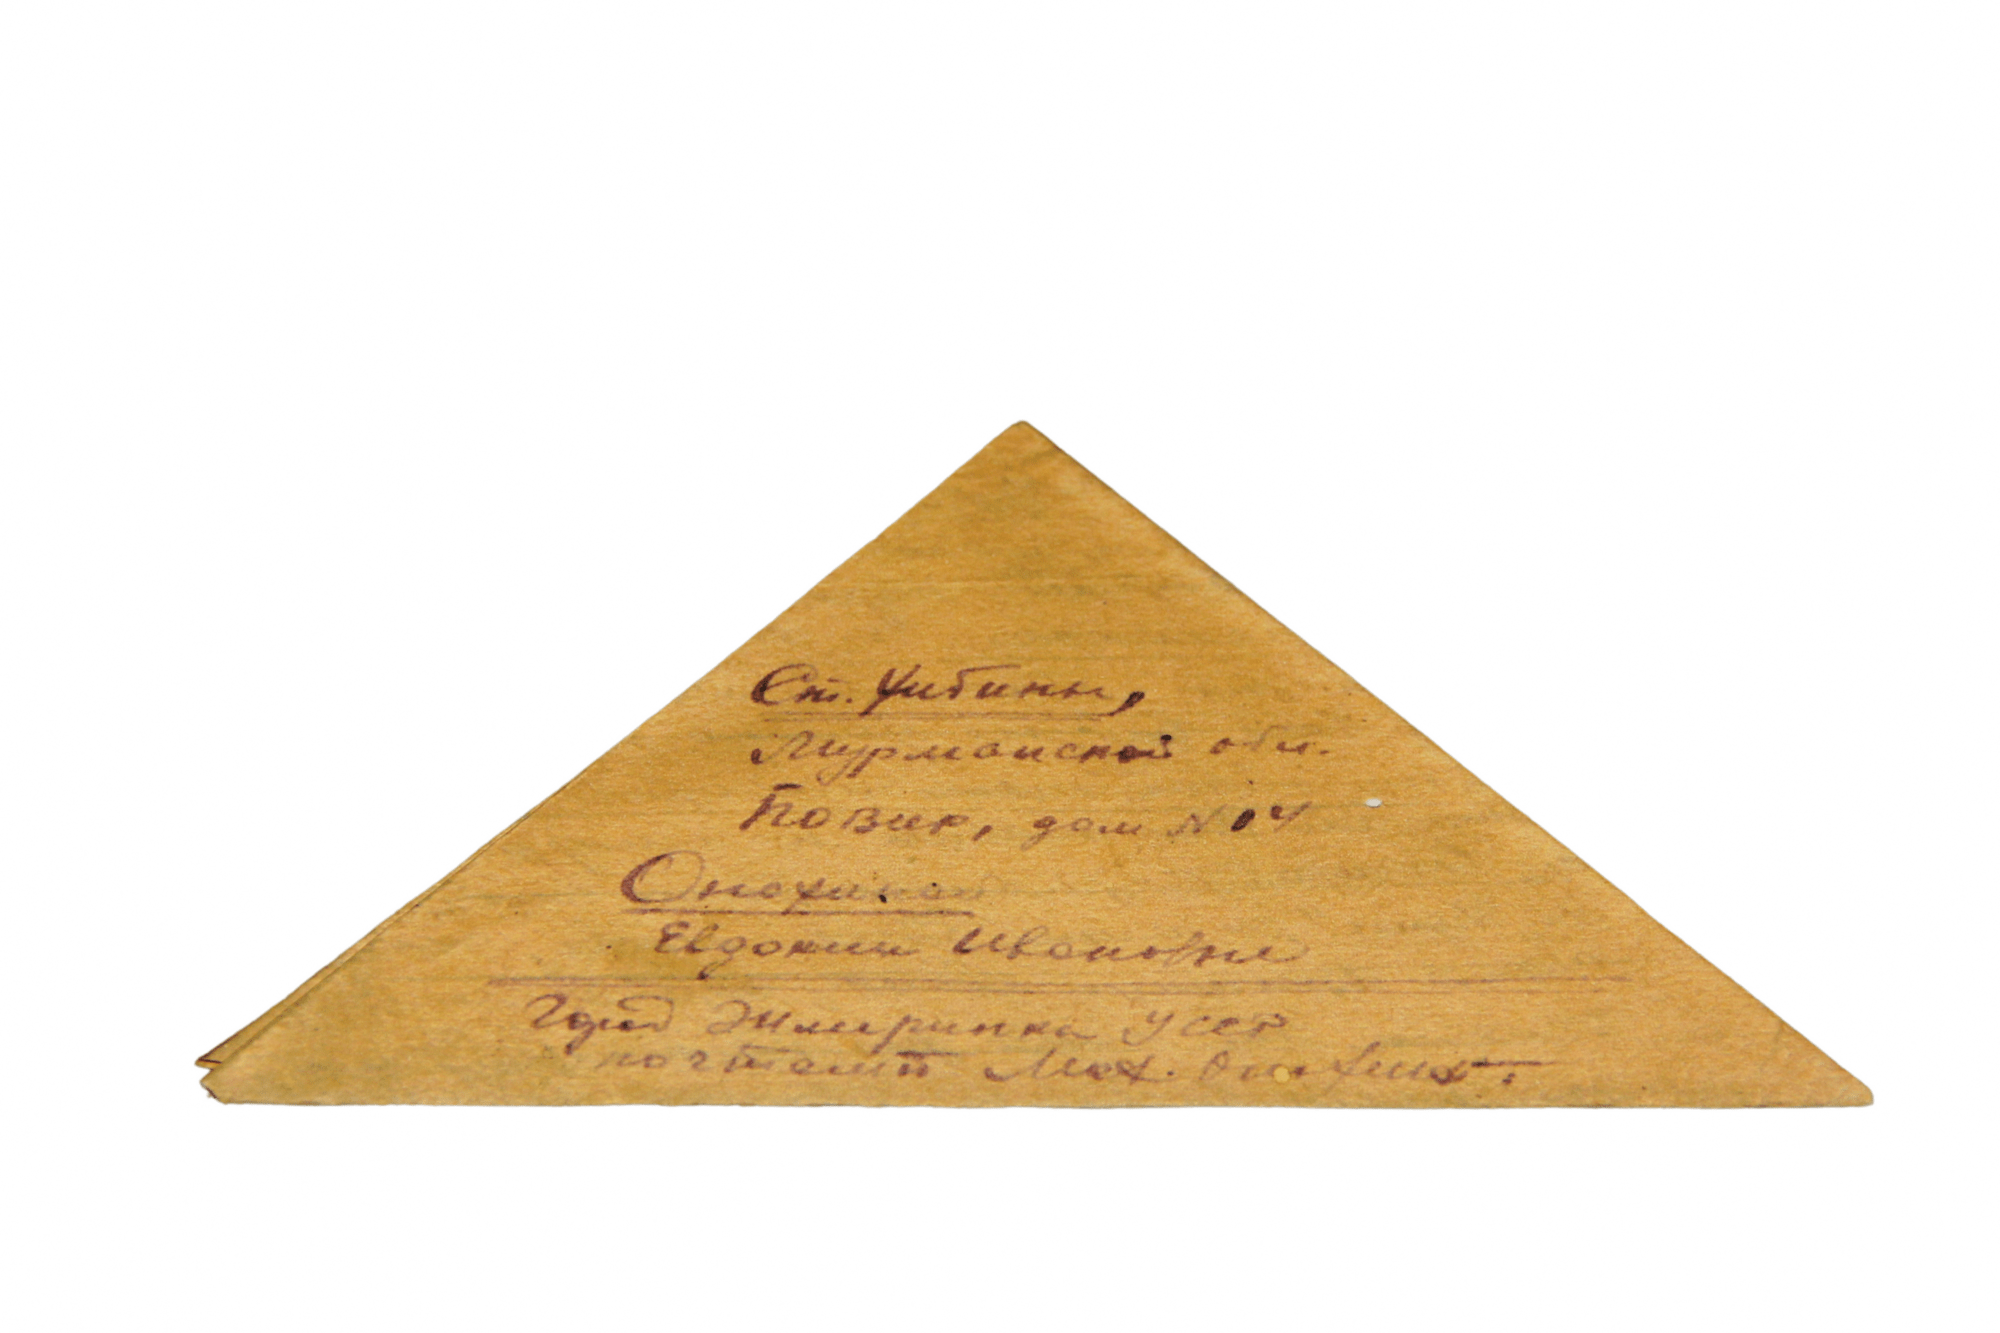 Ст. Хибины,
Мурманской обл.
дом № 4
Анфиной
Евдокии Ивановне
Город Жмеринка УССР
почтамт Мих.